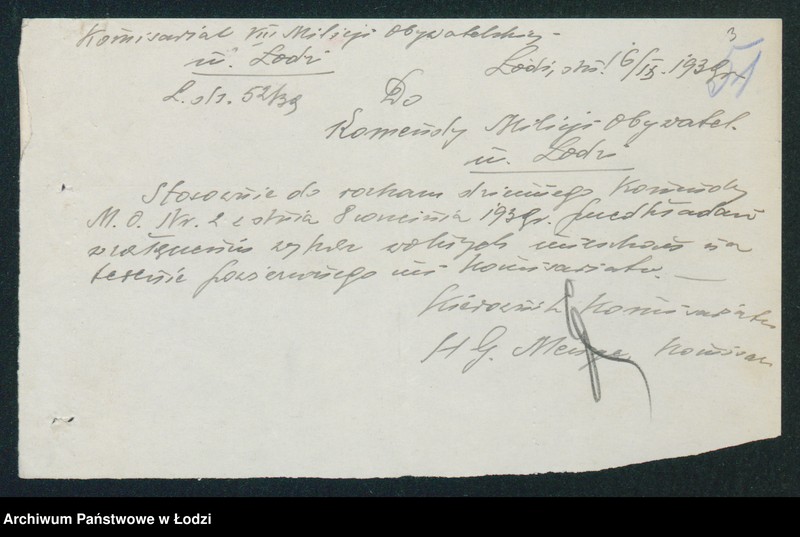 Komisariat VIII Milicji Obywatelskiej
m. Łodzi
Łódź, dn. 16/IX. 1939 r.
3
51
L. dz. 52/39
Do
Komendy Milicji Obywatel.
m. Łodzi
Stosownie do rozkazu dziennego Komendy
M. O. Nr. 2 z dnia 8 września 1939 r. przedkładam
w załączeniu wykaz wolnych mieszkań na
terenie powierzonego mi Komisariatu. —
Kierownik Komisariatu
H G. Komisarz
Archiwum Państwowe w Łodzi